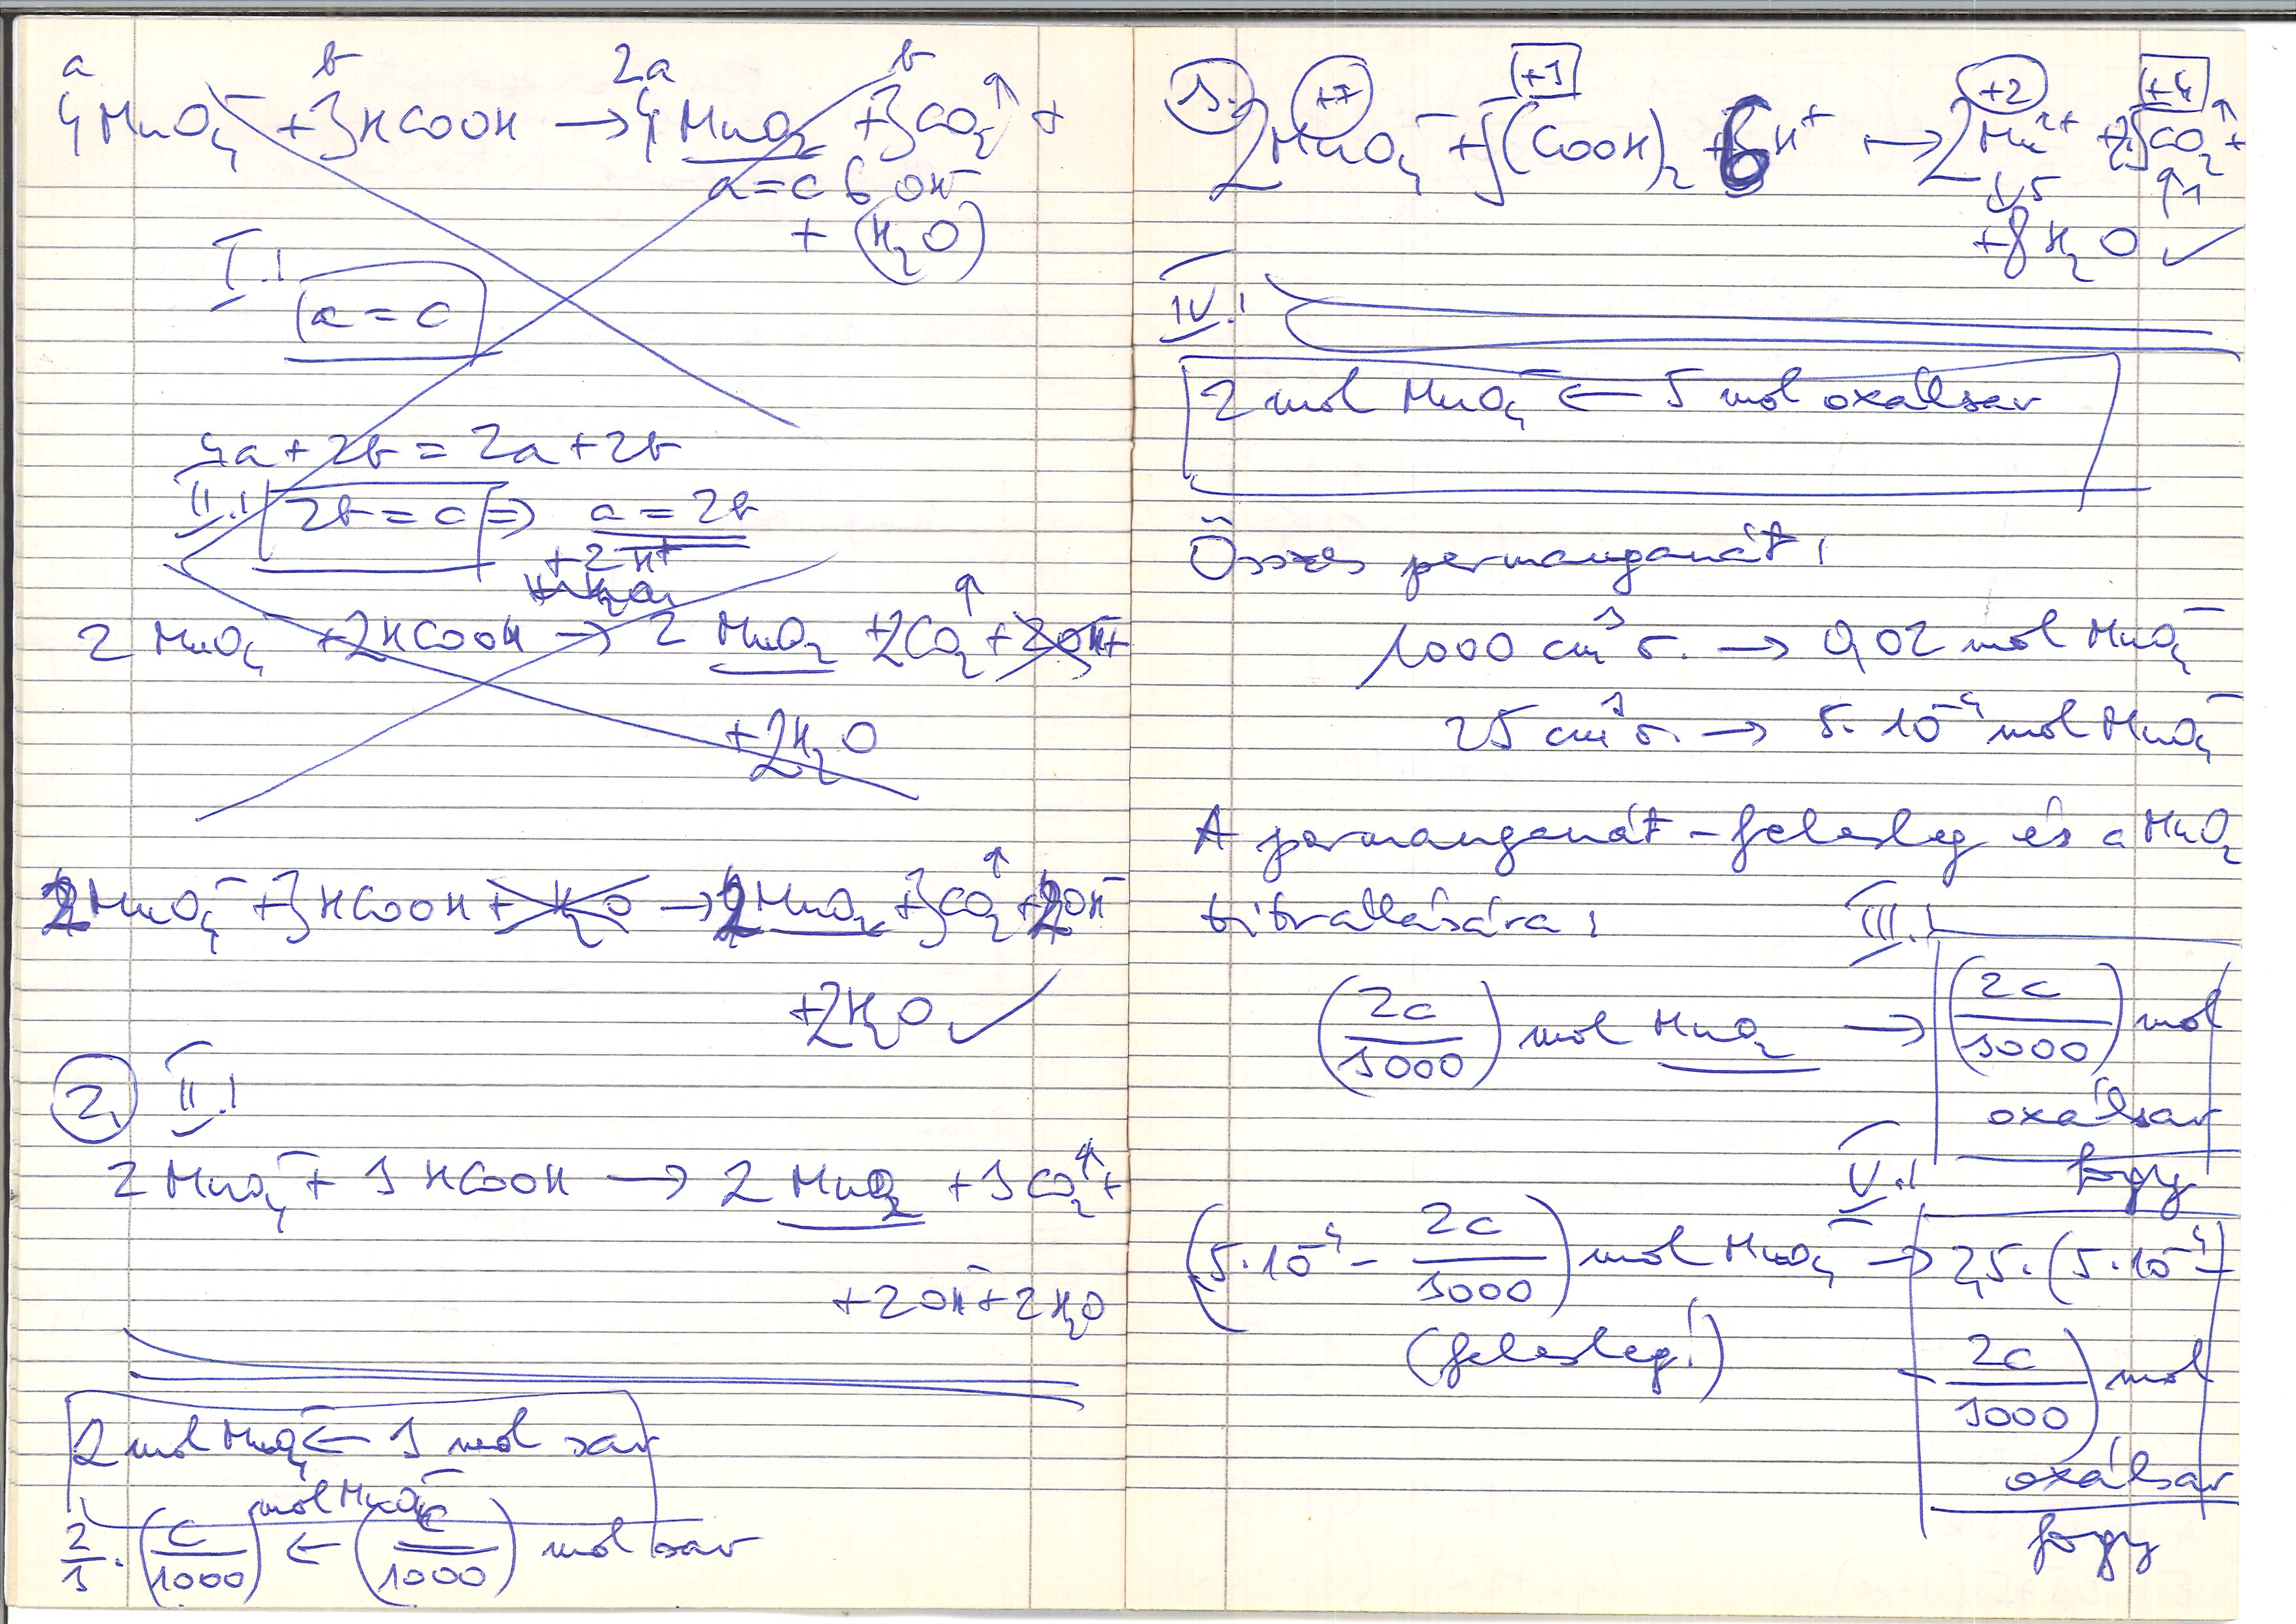 a b 2a b
4MnO₄⁻ + 3HCOOH → 4MnO₂ + 3CO₂↑ +
a = c 6 OH⁻
+ H₂O
I.!
a = c
4a + 2b = 2a + 2b
II.! 2b = c ⇒ a = 2b
+2H⁺
2 MnO₄⁻ + 2HCOOH → 2 MnO₂ + 2CO₂↑ + 2OH⁻ +
+2H₂O
2MnO₄⁻ + 3HCOOH + H₂O → 2MnO₂ + 3CO₂↑ + 2OH⁻
+2H₂O ✓
2, II.!
2 MnO₄⁻ + 3 HCOOH → 2 MnO₂ + 3CO₂↑ +
+2OH⁻ + 2H₂O
2 mol MnO₄⁻ ← 3 mol sav
2/3 · (c/1000) mol MnO₄⁻ ← (c/1000) mol sav
3. +7 +3 +2 +4
2MnO₄⁻ + 5(COOH)₂ + 6H⁺ → 2Mn²⁺ + 2·5CO₂↑ +
↓5 ↑1
+8H₂O ✓
IV.!
2 mol MnO₄⁻ ← 5 mol oxálsav
Összes permanganát:
1000 cm³ o. → 0,02 mol MnO₄⁻
25 cm³ o. → 5·10⁻⁴ mol MnO₄⁻
A permanganát-felesleg és a MnO₂
titrálására:
III.!
(2c/3000) mol MnO₂ → (2c/3000) mol
oxálsav
fogy
V.!
(5·10⁻⁴ - 2c/3000) mol MnO₄⁻ → 2,5·(5·10⁻⁴ -
(felesleg!) - 2c/3000) mol
oxálsav
fogy